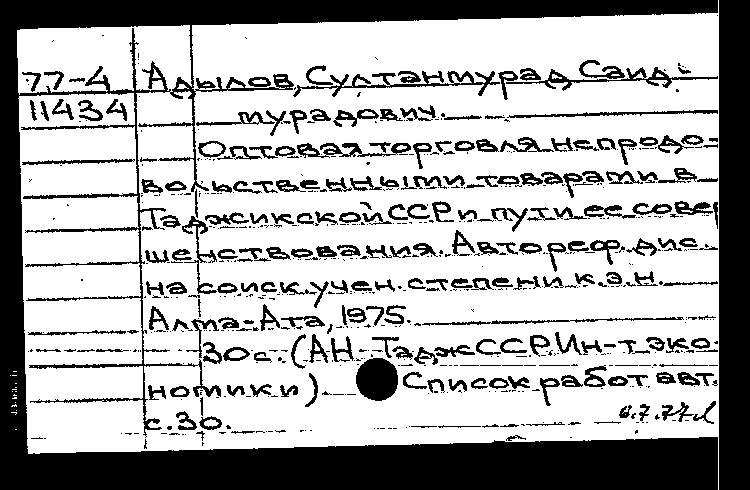 77-4 Адылов, Султанмурад Саид-
11434 мурадович.
Оптовая торговля непродо-
вольственными товарами в
Таджикской ССР и пути ее совер
шенствования. Автореф. дис.
на соиск. учен. степени к.э.н.
Алма-Ата, 1975.
30 с. (АН ТаджССР Ин-т эко-
номики). Список работ авт.
с. 30.